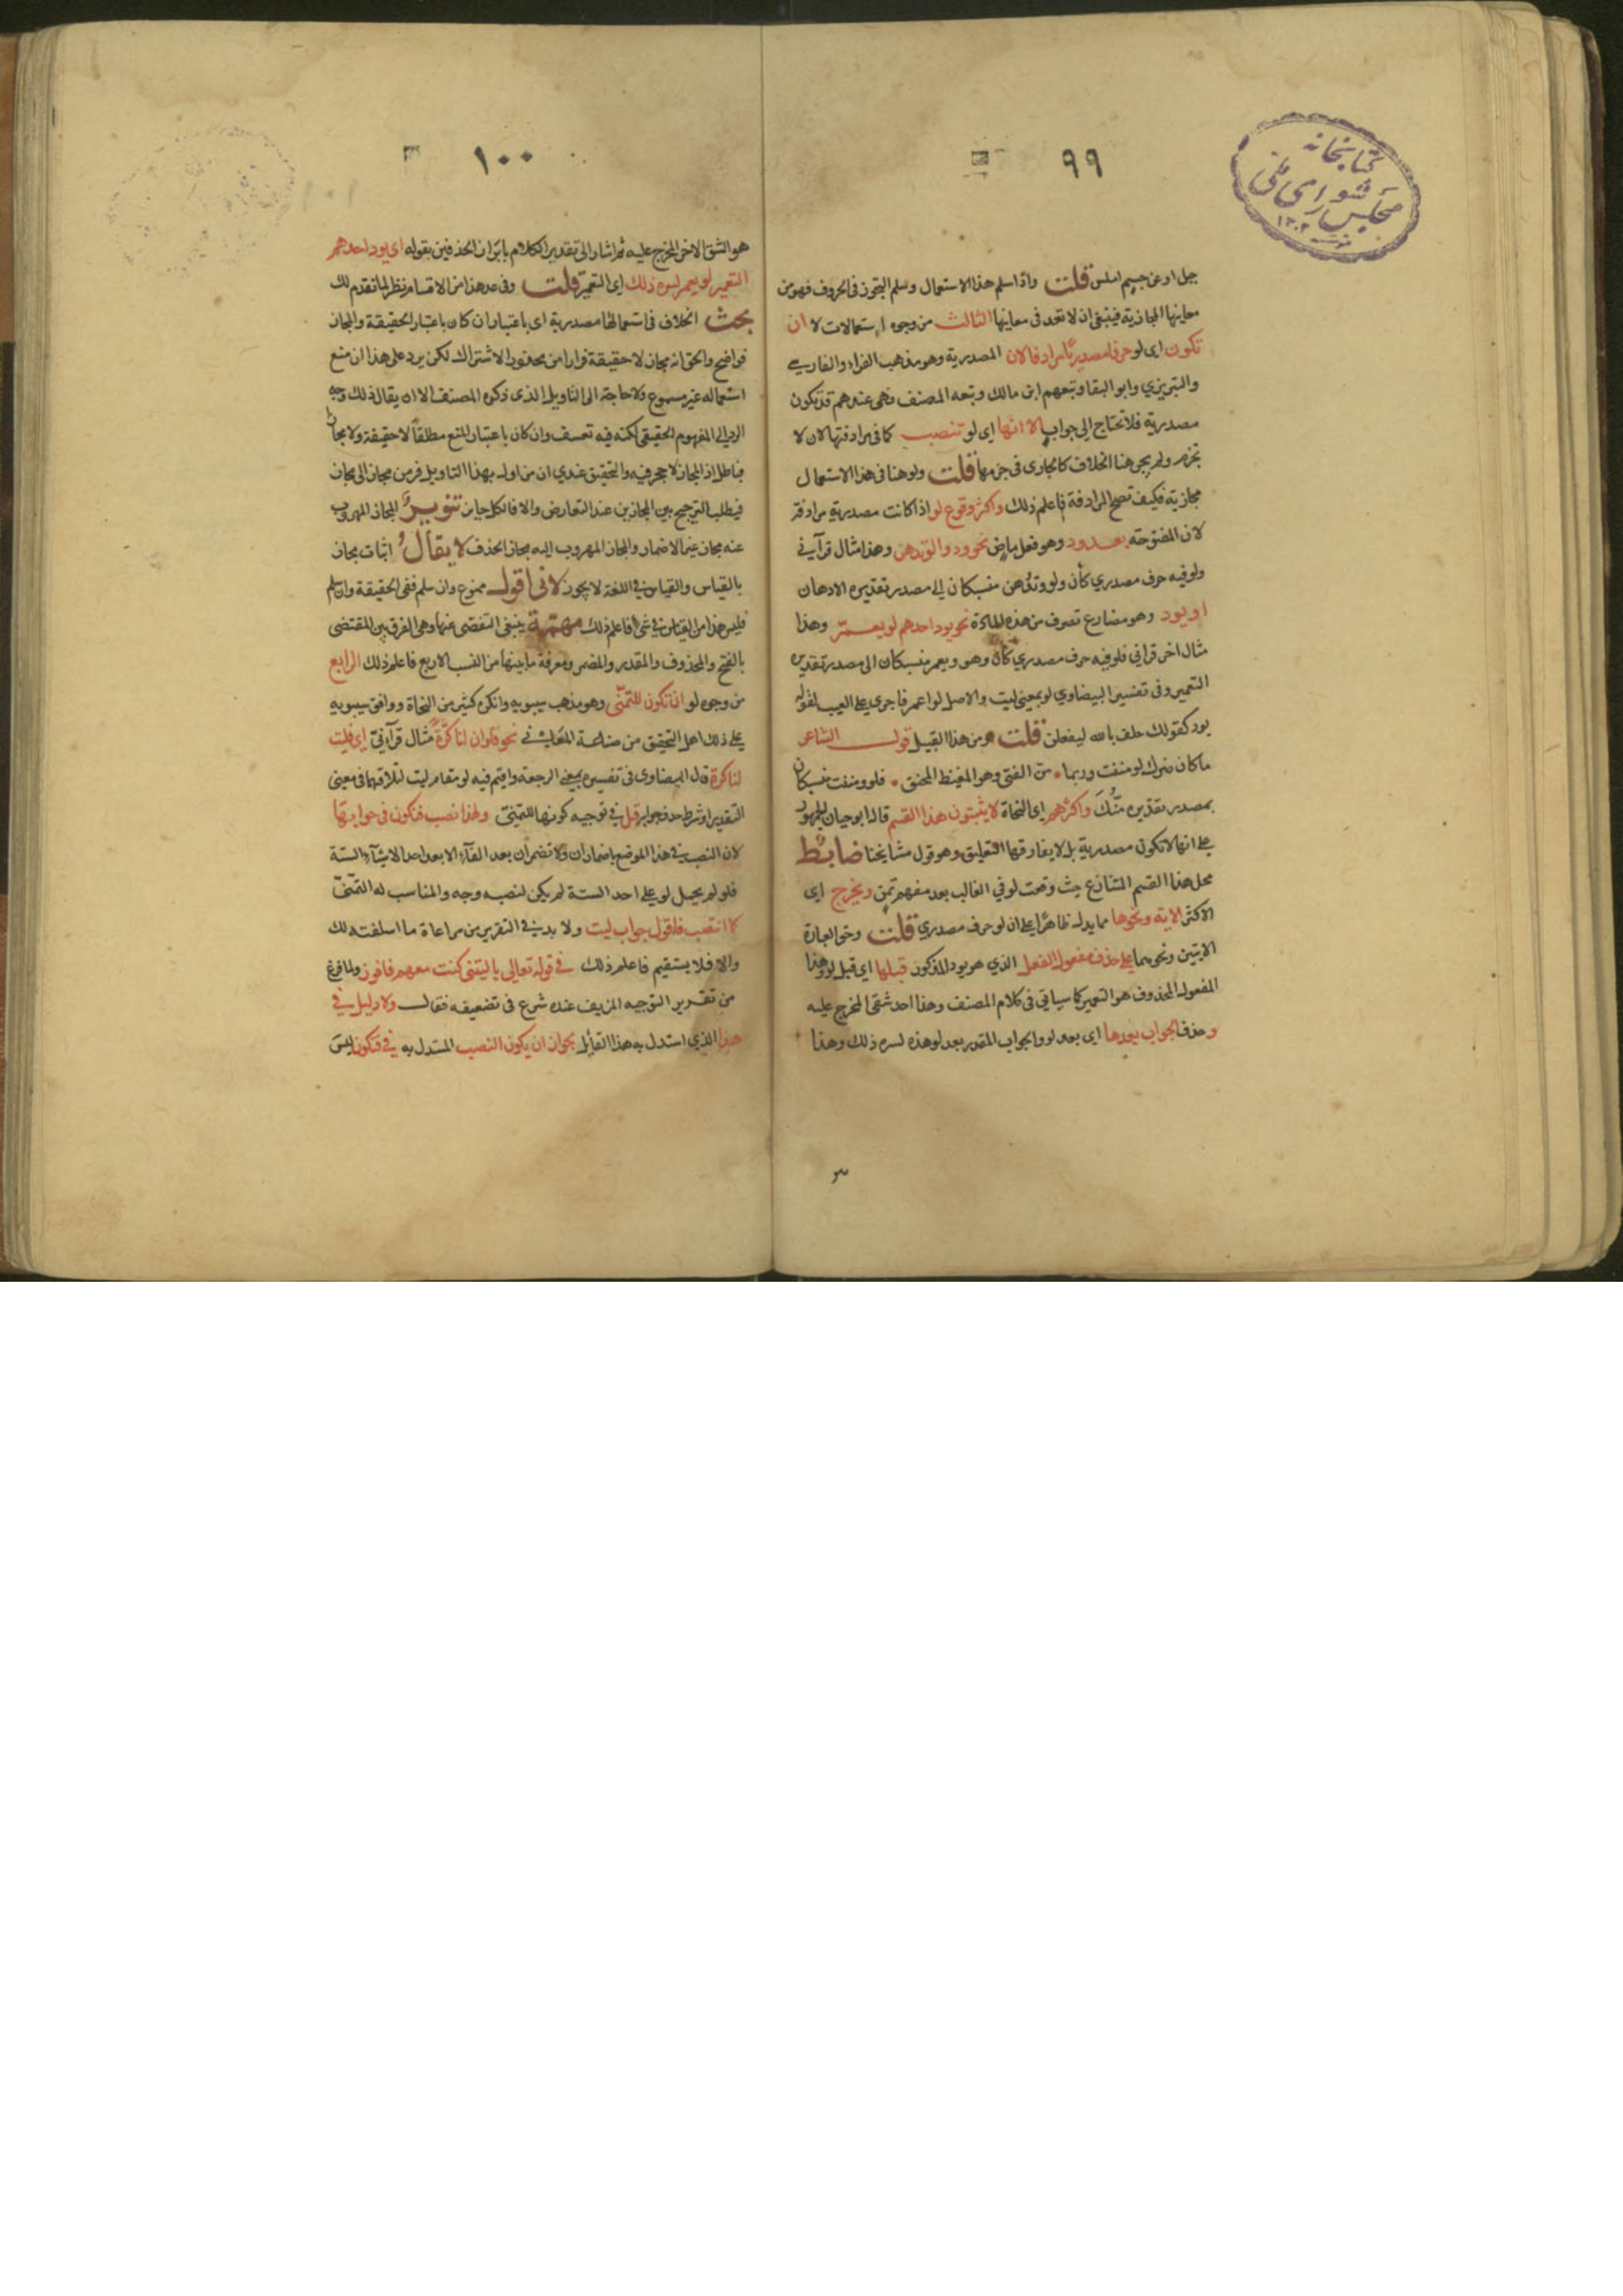 ٩٩
كتابخانه
مجلس شورای ملی
١٣٠٢
جبل او عن جسيم املس قلت واذا سلم هذا الاستعمال وسلم التجوز فى الحروف فهو من
معاينها المجازية فينبغى ان لا تعد فى معاينها الثالث من وجوه استعمالات لو ان
تكون اى لو حرفا مصدريا مرادفا لان المصدرية وهو مذهب الفراء والفارسي
والتبريزي وابو البقا وتبعهم ابن مالك وتبعه المصنف فهى عندهم قد تكون
مصدرية فلا تحتاج إلى جواب الا انها اى لو تنصب كما فى مرادفتها لان لا
تجزم ولم يجى هنا الخلاف كما جارى فى جزمها قلت ولو هنا فى هذا الاستعمال
مجازية فكيف تصح المرادفة فاعلم ذلك واكثر وقوع لو اذا كانت مصدرية مرادفة
لان المفتوحة بعد ود وهو فعل ماض نحو ودوا لو تدهن وهذا مثال قرآني
ولو فيه حرف مصدري كأن ولو وتدهن منسبكان الى مصدر تقديره الادهان
او يود وهو مضارع تصرف من هذه المادة نحو يود احدهم لو يعمر وهذا
مثال اخر قراني فلو فيه حرف مصدري كأن وهو ويعمر منسبكان الى مصدر تقديره
التعمير وفى تفسير البيضاوي لو بمعنى ليت والاصل لو اعمر فاجرى على الغيب لقوله
يود كقولك حلف بالله ليفعلن قلت ومن هذا القبيل قول الشاعر
ما كان ضرك لو مننت وربما ٭ من الفتى وهو المغيظ المحنق ٭ فلو ومننت منسبكان
بمصدر تقديره منك واكثرهم اى النحاة لا يثبتون هذا القسم قال ابو حيان الجمهور
على انها لا تكون مصدرية بل لا يفارقها التعليق وهو قول مشايخنا ضابط
محل هذا القسم المتنازع حيث وقعت لو في الغالب بعد مفهم تمن ويخرج اى
الاكثر الاية ونحوها مما يدل ظاهرا على ان لو حرف مصدري قلت وحق العبارة
الايتين ونحوهما على حذف مفعول الفعل الذي هو يود المذكور قبلها اى قبل لو وهذا
المفعول المحذوف هو التعمير كما سياتى فى كلام المصنف وهذا احد شقى المخرج عليه
وحذف الجواب بعدها اى بعد لو والجواب المقدر بعد لو هذه لسره ذلك وهذا
١٠٠
هو الشق الاخر المخرج عليه ثم اشار الى تقدير الكلام بابراز الحذفين بقوله اى يود احدهم
التعمير لو يعمر لسره ذلك اى التعمير قلت وفى عد هذا من الاقسام نظر لما تقدم لك
بحث الخلاف فى استعمالها مصدرية اى باعتبار ان كان باعتبار الحقيقة والمجاز
فواضح والحق انه مجاز لا حقيقة فرارا من محذور الاشتراك لكن يرد على هذا ان منع
استعماله غير مسموع ولا حاجة الى التاويل الذى ذكره المصنف الا ان يقال ذلك وجه
الرد الى المفهوم الحقيقى لكنه فيه تعسف وان كان باعتبار المنع مطلقا لا حقيقة ولا مجاز
فباطل اذ المجاز لا حجر فيه والتحقيق عندي ان من اوله بهذا التاويل فر من مجاز الى مجاز
فيطلب الترجيح بين المجازين عند التعارض والا فالكل جايز تنوير المجاز المهروب
عنه مجاز غير الاضمار والمجاز المهروب اليه مجاز الحذف لا يقال اثبات مجاز
بالقياس والقياس في اللغة لا يجوز لانى اقول ممنوع وان سلم ففى الحقيقة وان سلم
فليس هذا من القياس في شئ فاعلم ذلك مهمة ينبغى التفصى عنها وهى الفرق بين المقتضى
بالفتح والمحذوف والمقدر والمضمر ومعرفة ما بينها من النسب الاربع فاعلم ذلك الرابع
من وجوه لو ان تكون للتمنى وهو مذهب سيبويه وانكره كثير من النحاة ووافق سيبويه
على ذلك اهل التحقيق من صناعة المعاني نحو فلو ان لنا كرة مثال قرآني اى فليت
لنا كرة قال البيضاوى فى تفسيره بمعنى الرجعة واقيم فيه لو مقام ليت لتلاقيهما فى معنى
التقدير او شرط حذف جوابه قيل في توجيه كونها للتمنى ولهذا نصب فنكون فى جوابها
لان النصب في هذا الموضع باضمار ان ولا تضمر ان بعد الفاء الا بعد احد الاشياء الستة
فلو لم يحمل لو على احد الستة لم يكن لنصبه وجه والمناسب له التمنى
كما انتصب فافوز جواب ليت ولا بد في التقرير من مراعاة ما اسلفته لك
والا فلا يستقيم فاعلم ذلك في قوله تعالى يا ليتنى كنت معهم فافوز ولما فرغ
من تقرير التوجيه المزيف عنده شرع فى تضعيفه فقال ولا دليل في
هذا الذي استدل به هذا القائل بجواز ان يكون النصب المستدل به في فنكون ليس